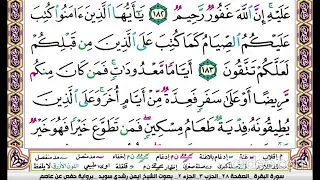 عَلَيْهِ إِنَّ اللَّهَ غَفُورٌ رَّحِيمٌ ﴿١٨٢﴾ يَٰٓأَيُّهَا الَّذِينَ ءَامَنُوا كُتِبَ
عَلَيْكُمُ الصِّيَامُ كَمَا كُتِبَ عَلَى الَّذِينَ مِن قَبْلِكُمْ
لَعَلَّكُمْ تَتَّقُونَ ﴿١٨٣﴾ أَيَّامًا مَّعْدُودَٰتٍ فَمَن كَانَ مِنكُم
مَّرِيضًا أَوْ عَلَىٰ سَفَرٍ فَعِدَّةٌ مِّنْ أَيَّامٍ أُخَرَ وَعَلَى الَّذِينَ
يُطِيقُونَهُ فِدْيَةٌ طَعَامُ مِسْكِينٍ فَمَن تَطَوَّعَ خَيْرًا فَهُوَ خَيْرٌ
سورة البقرة - الصفحة ٢٨ - الجزء ٢ - الحزب ٣ - بصوت الشيخ أيمن رشدي سويد - برواية حفص عن عاصم